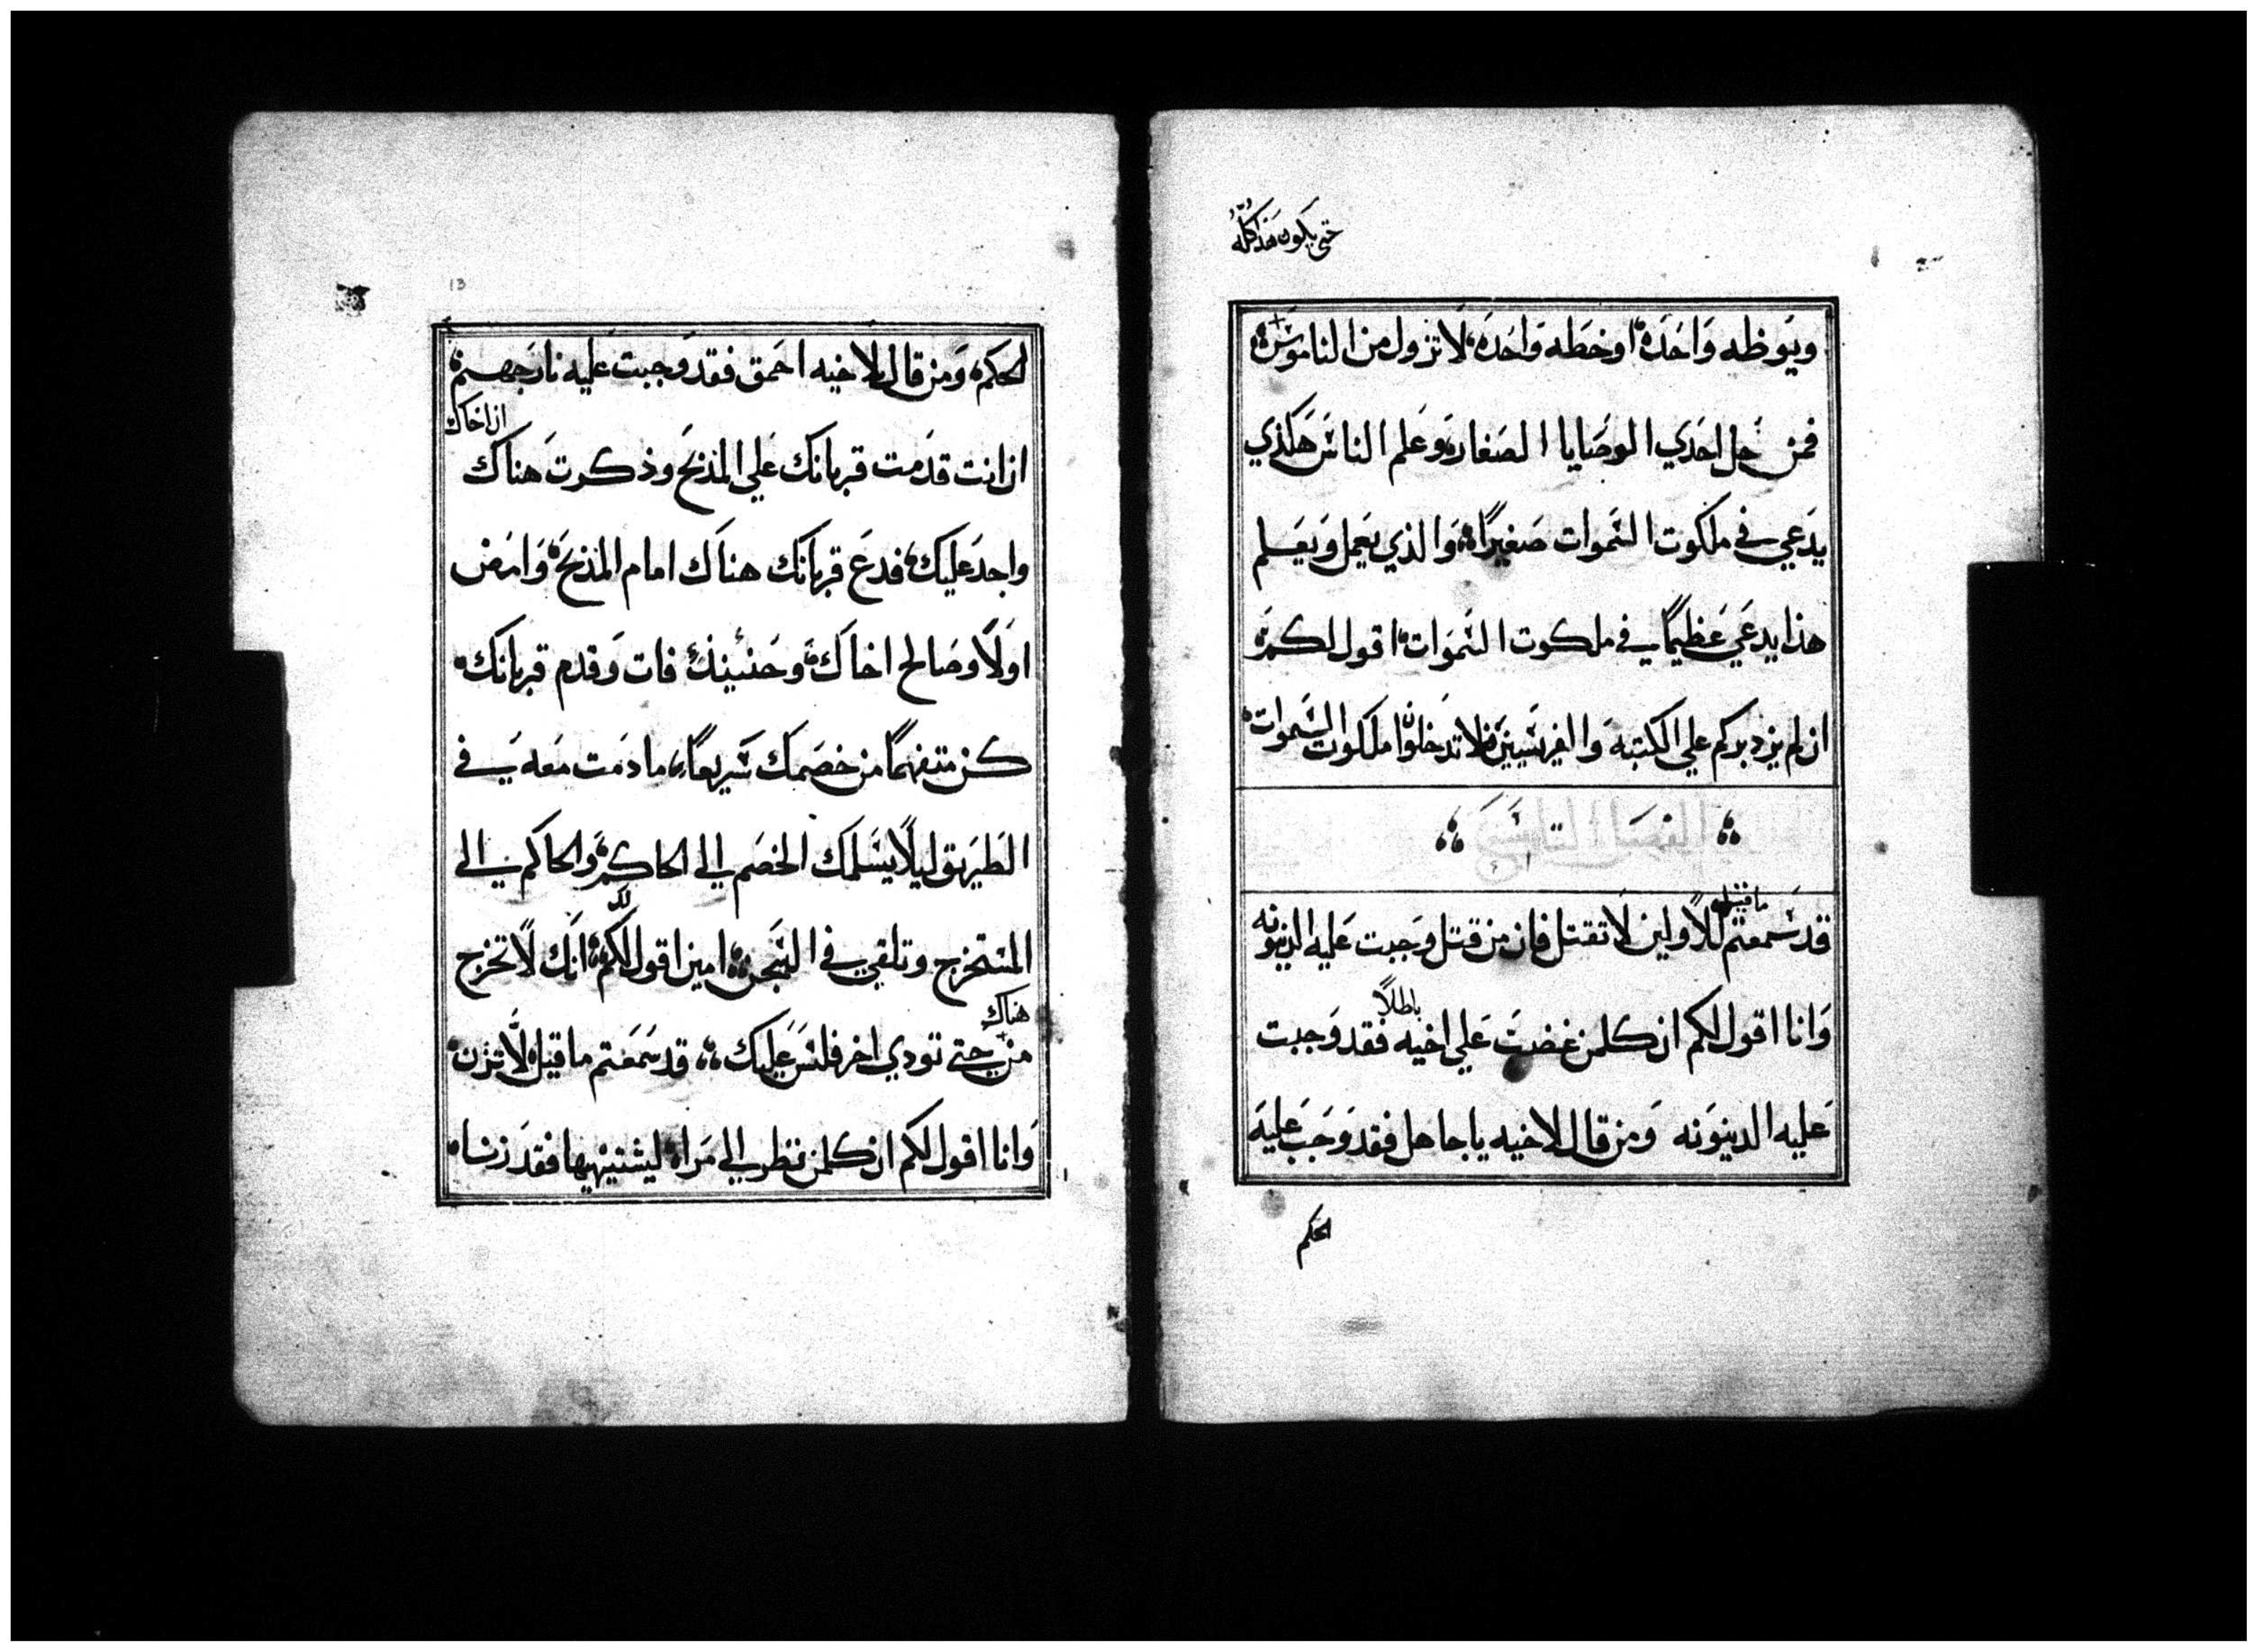 حتي يكون هذا كله
ويوظه واحده او خطه واحده لا تزول من الناموس
فمن حل احدي الوصايا الصغار وعلم الناس هكذي
يدعي في ملكوت السموات صغيرًا والذي يعمل ويعلم
هذا يدعي عظيمًا في ملكوت السموات اقول لكم
ان لم يزد بركم علي الكتبه والفريسيين فلا تدخلون ملكوت السموات
الفصل التاسع
ما قيل
قد سمعتم للاولين لا تقتل فان من قتل وجبت عليه الدينونه
باطلاً
وانا اقول لكم ان كلمن غضب علي اخيه فقد وجبت
عليه الدينونه ومن قال لاخيه يا جاهل فقد وجب عليه
الحكم
13
الحكم ومن قال لاخيه احمق فقد وجبت عليه نار جهنم
ان اخاك
ان انت قدمت قربانك علي المذبح وذكرت هناك
واجد عليك فدع قربانك هناك امام المذبح وامض
اولاً وصالح اخاك وحنئيذ فات وقدم قربانك
كن متفهمًا من خصمك سريعًا ما دمت معه في
الطريق ليلا يسلمك الخصم الي الحاكم والحاكم الي
المستخرج وتلقي في السجن امين اقول لك انك لا تخرج
هناك
من حتي تودي اخر فلس عليك قد سمعتم ما قيل لا تزن
وانا اقول لكم ان كلمن نظر الي مراه ليشتهيها فقد زنا